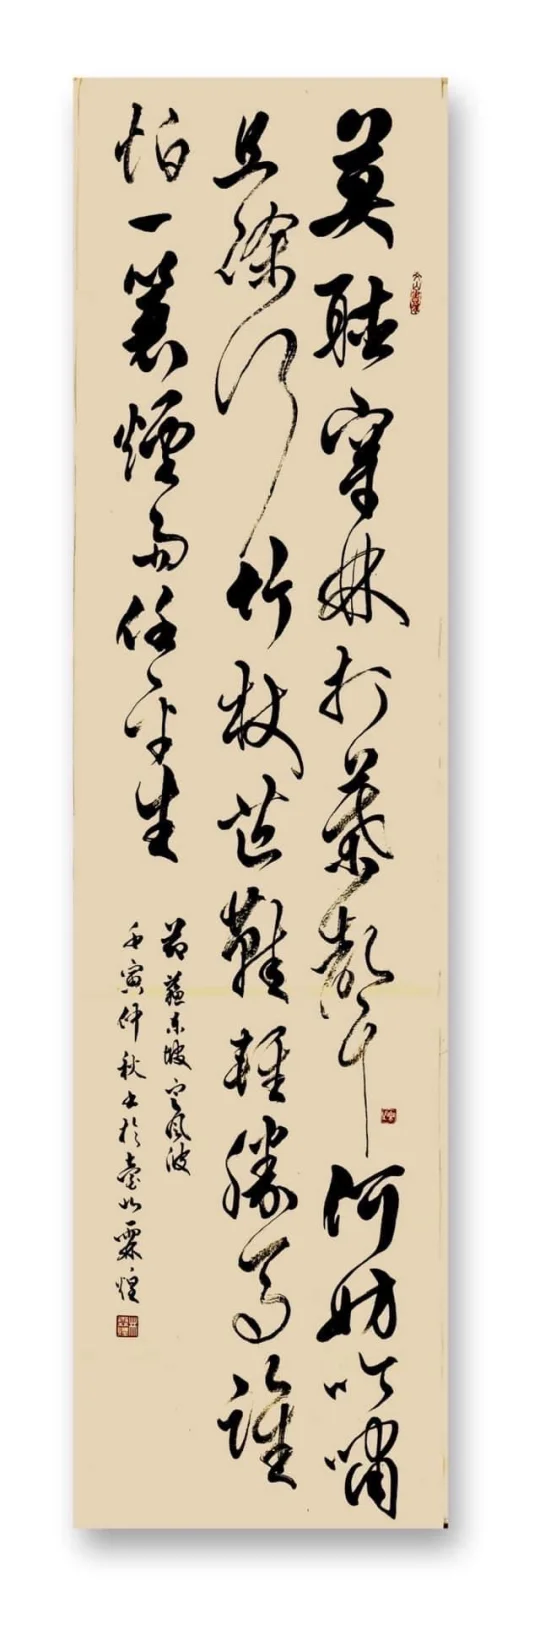 莫聽穿林打葉聲何妨吟嘯
且徐行竹杖芒鞋輕勝馬誰
怕一蓑煙雨任平生
節蘇東坡定風波
壬寅仲秋書於臺北霖煌